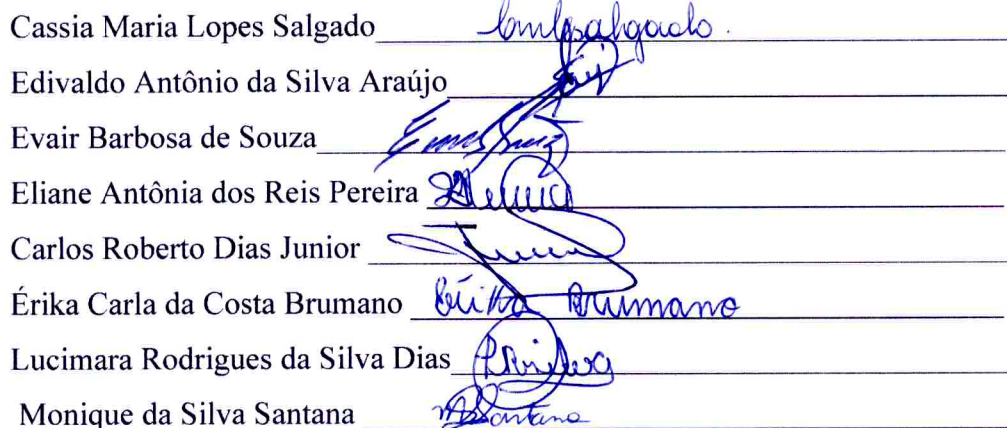 Cassia Maria Lopes Salgado Cmlsalgado.
Edivaldo Antônio da Silva Araújo
Evair Barbosa de Souza
Eliane Antônia dos Reis Pereira
Carlos Roberto Dias Junior
Érika Carla da Costa Brumano Érika Brumano
Lucimara Rodrigues da Silva Dias
Monique da Silva Santana MSSantana